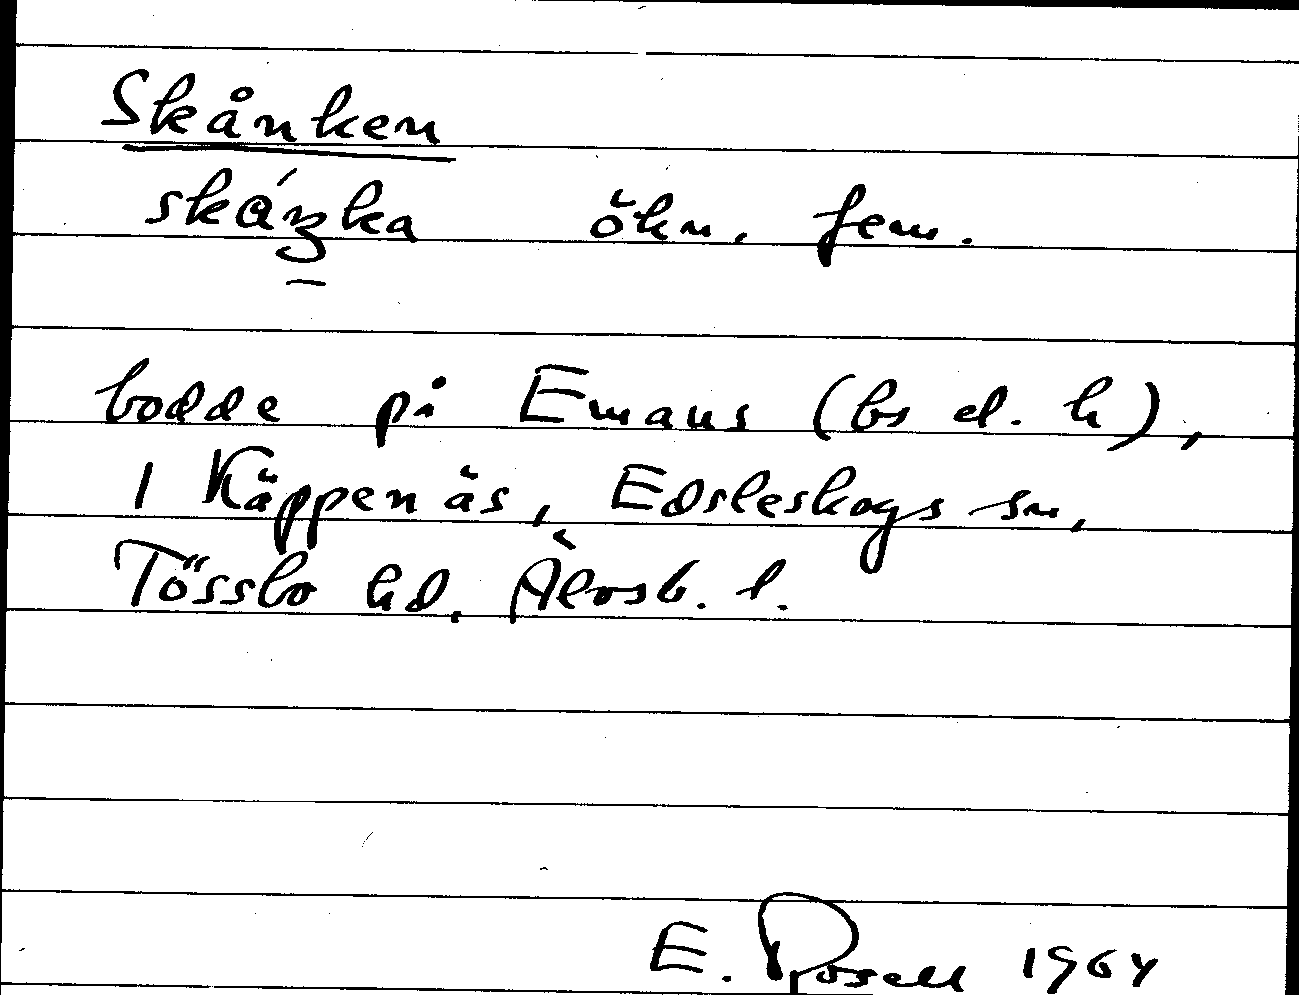 Skånken
skáŋka ökn. fem.
bodde på Emaus (bs el. h),
1 Käppenäs, Edsleskogs sn,
Tössbo hd. Älvsb. l.
E. Rosell 1964